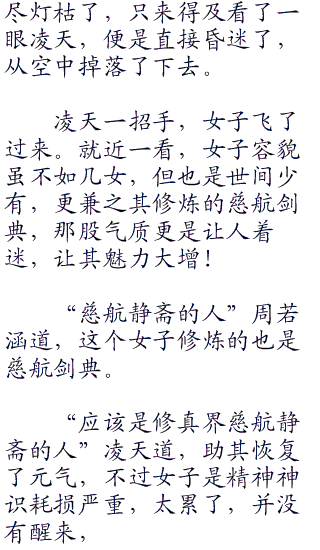 尽灯枯了，只来得及看了一
眼凌天，便是直接昏迷了，
从空中掉落了下去。
凌天一招手，女子飞了
过来。就近一看，女子容貌
虽不如几女，但也是世间少
有，更兼之其修炼的慈航剑
典，那股气质更是让人着
迷，让其魅力大增！
“慈航静斋的人”周若
涵道，这个女子修炼的也是
慈航剑典。
“应该是修真界慈航静
斋的人”凌天道，助其恢复
了元气，不过女子是精神神
识耗损严重，太累了，并没
有醒来，